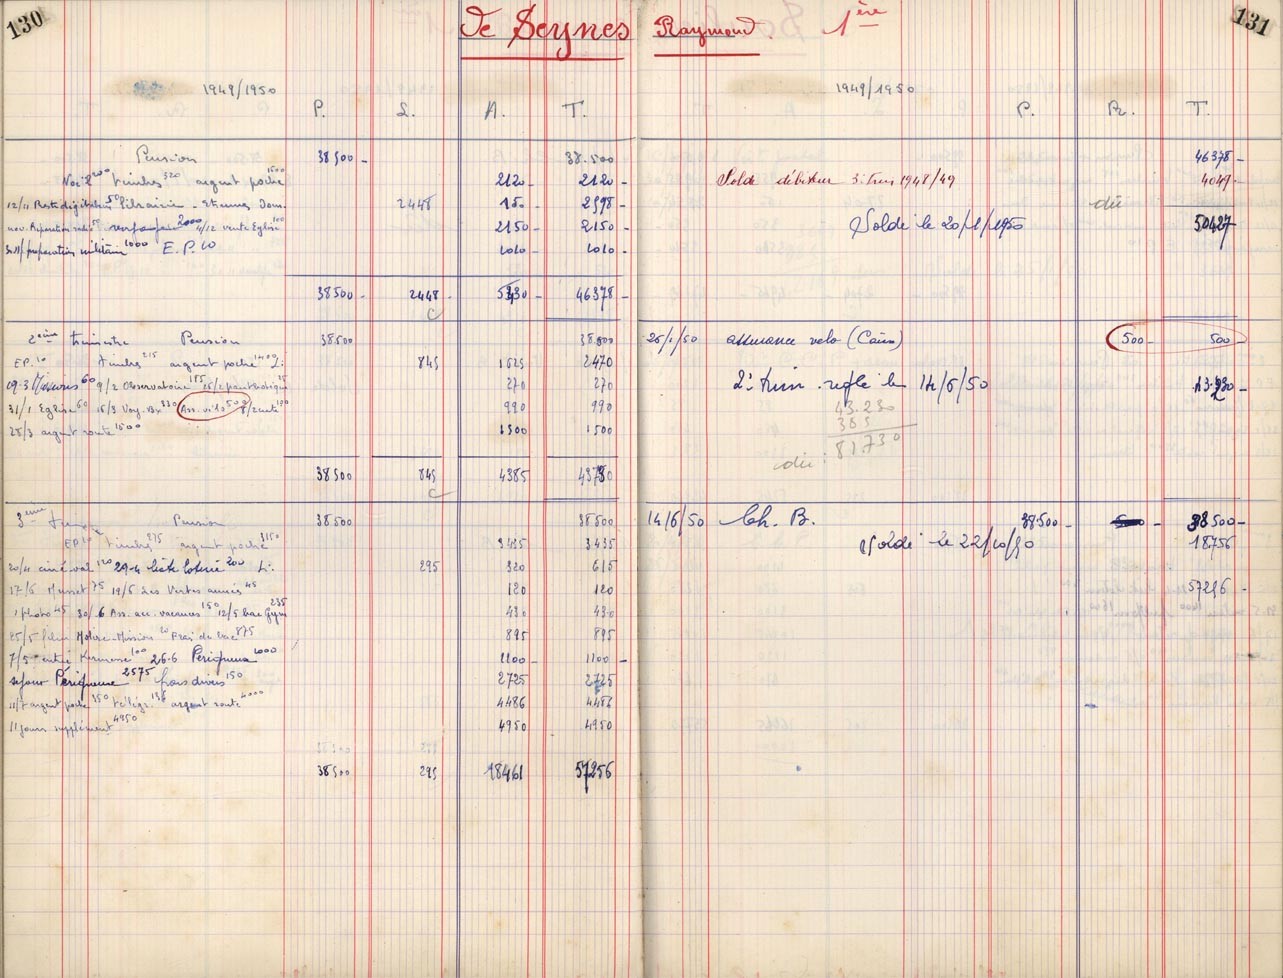 130
De Seynes Raymond. 1ère
131
1949/1950
P. L. A. T.
Pension 38500 - 38.500
Noël 200 timbres 320 argent poche 1600 2120 - 2120 -
12/11 Prestidigitateur 50 librairie - Etrennes Dom. 2448 150 - 2598 -
nov. Réparation 50 2000 4/12 vente Eglise 100 2150 - 2150 -
préparation militaire 1000 E.P. 10 1010 - 1010 -
38500 - 2448 - 5430 - 46378 -
2ème trimestre Pension 38500 38.500
EP. 10 timbres 215 argent poche 1400 L: 845 1625 2470
60 9/2 Observatoire 185 25 270 270
31/1 Eglise 60 15/3 Voy. Bx 330 Ass. vélo 500 100 990 990
28/3 argent route 1500 1500 1500
38500 845 4385
3ème Pension 38500 38500
EP. 10 timbres 275 argent poche 3150 3435 3435
20/4 ciné val 120 29-4 loterie 200 L: 295 320 615
17/5 Musset 75 19/5 Les Vertes années 45 120 120
1 photo 45 30/6 Ass. acc. vacances 150 12/5 bac Gym 235 430 430
25/5 film Molière - Mission 20 Frais de bac 875 895 895
7/5 entrée Kermesse 100 26.6 Périgueux 1000 1100 - 1100 -
séjour Périgueux 2575 frais divers 150 2725 2725
argent poche 350 télégr. 136 argent route 4000 4486 4486
11 jours supplément 4950 4950 4950
38500 295 18461 57256
1949/1950
P. Br. T.
46378 -
Solde débiteur 3e trim 1948/49 4049 -
dû
Soldé le 20/1/1950 50427
25/1/50 assurance vélo (Cais) 500 - 500 -
2e trim. réglé le 14/6/50 43.230 -
43.230
385
dû : 81.730
14/6/50 Ch. B. 38500 - 38500 -
Soldé le 22/10/50 18756
57256 -